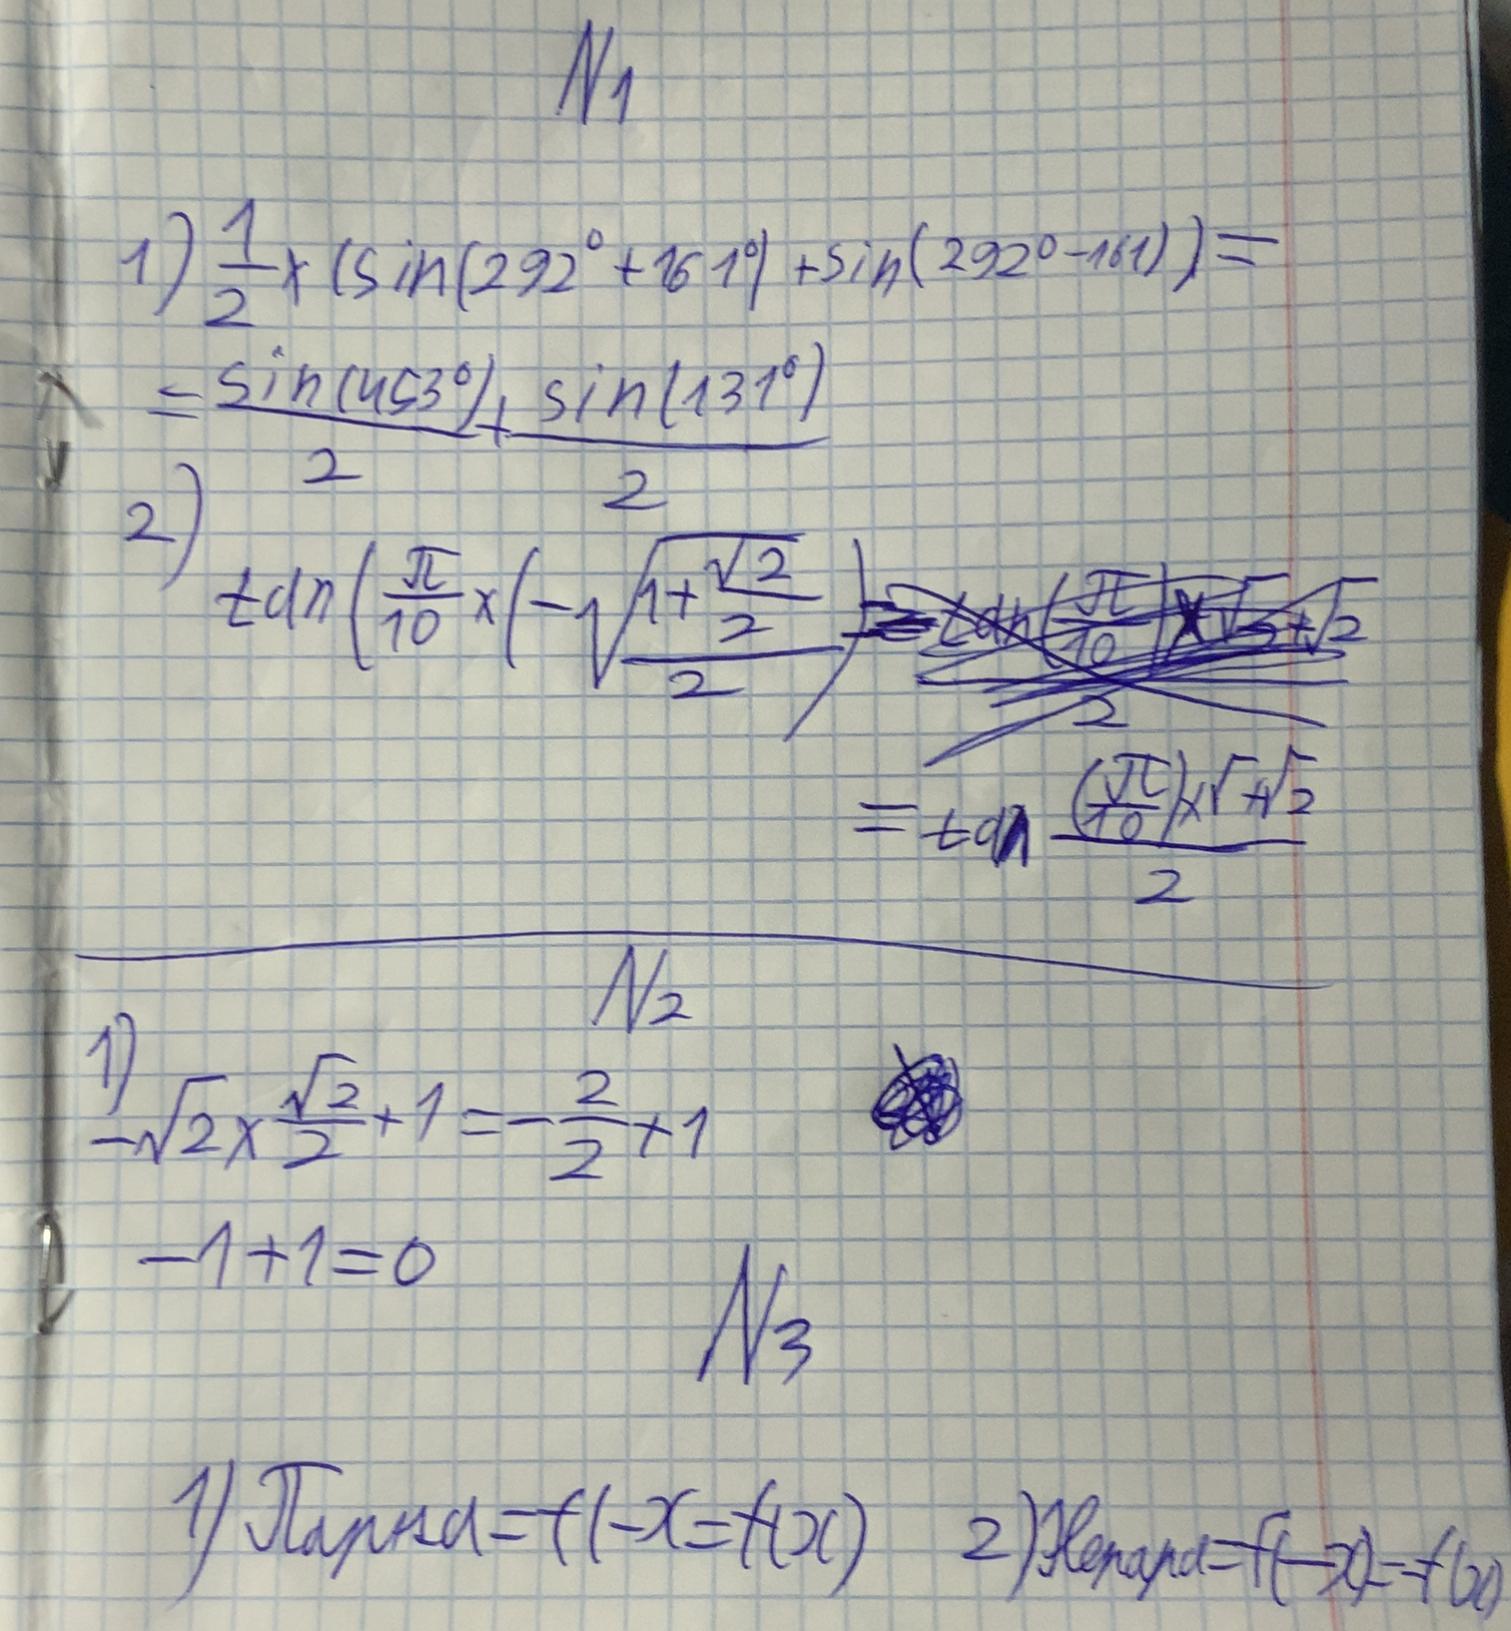 N1
1) 1/2 × (sin(292° + 161°) + sin(292° - 161)) =
= sin(453°)/2 + sin(131°)/2
2) tan(π/10 × (-√((1 + √2/2)/2))
= tan ((π/10) × √ + √2)/2
N2
1) -√2 × √2/2 + 1 = -2/2 + 1
-1 + 1 = 0
N3
1) Парна = f(-x = f(x) 2) Непарна = f(-x) = -f(x)